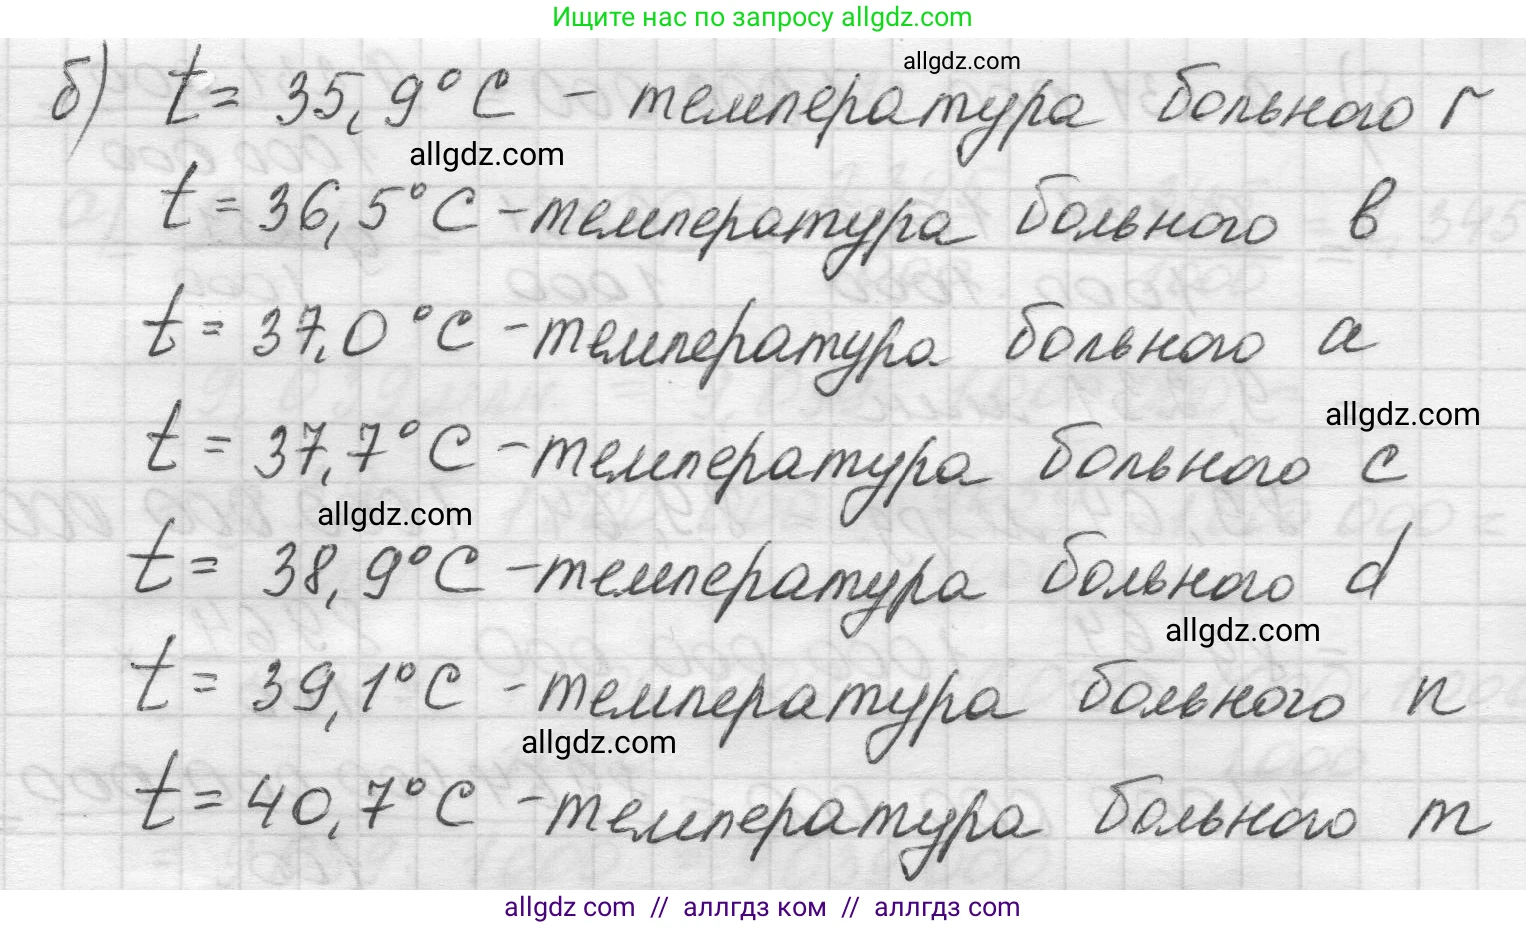 Ищите нас по запросу allgdz.com
б) t = 35,9°C - температура больного r
allgdz.com
allgdz.com
t = 36,5°C - температура больного в
t = 37,0°C - температура больного a
allgdz.com
t = 37,7°C - температура больного c
allgdz.com
t = 38,9°C - температура больного d
allgdz.com
t = 39,1°C - температура больного n
allgdz.com
t = 40,7°C - температура больного m
allgdz com // аллгдз ком // аллгдз com